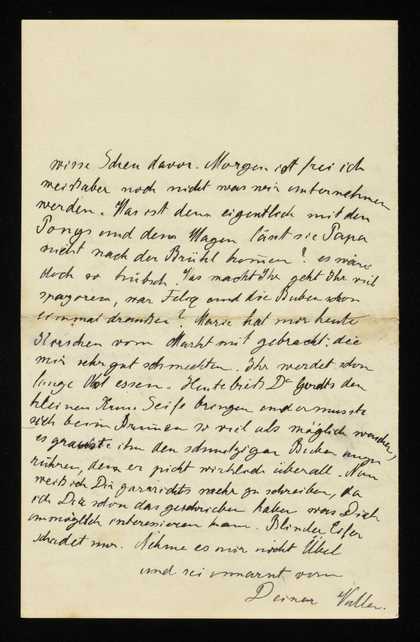 wisse Scheu davor. Morgen ist frei ich
weiss aber noch nicht was wir unternehmen
werden. Was ist denn eigentlich mit den
Ponys und dem Wagen lässt sie Papa
nicht nach der Brühl kommen? es wäre
doch so hübsch Was macht Ihr geht Ihr viel
spazieren, war Felix und die Buben schon
einmal draußen? Marie hat mir heute
Kirschen vom Markt mit gebracht; die
mir sehr gut schmeckten. Ihr werdet schon
lange Obst essen. Heute ließ Dr den
kleinen Seife bringen und er musste
sich beim Brunnen so viel als möglich waschen,
es grauste ihm den schmutzigen Buben anzu
rühren, denn er pickt wirklich überall. Nun
weiß ich Dir gar nichts mehr zu schreiben, da
ich Dir schon das geschrieben habe was Dich
womöglich interessieren kann. Blinder Eifer
schadet nur. Nehme es mir nicht Übel
und sei umarmt von
Deiner